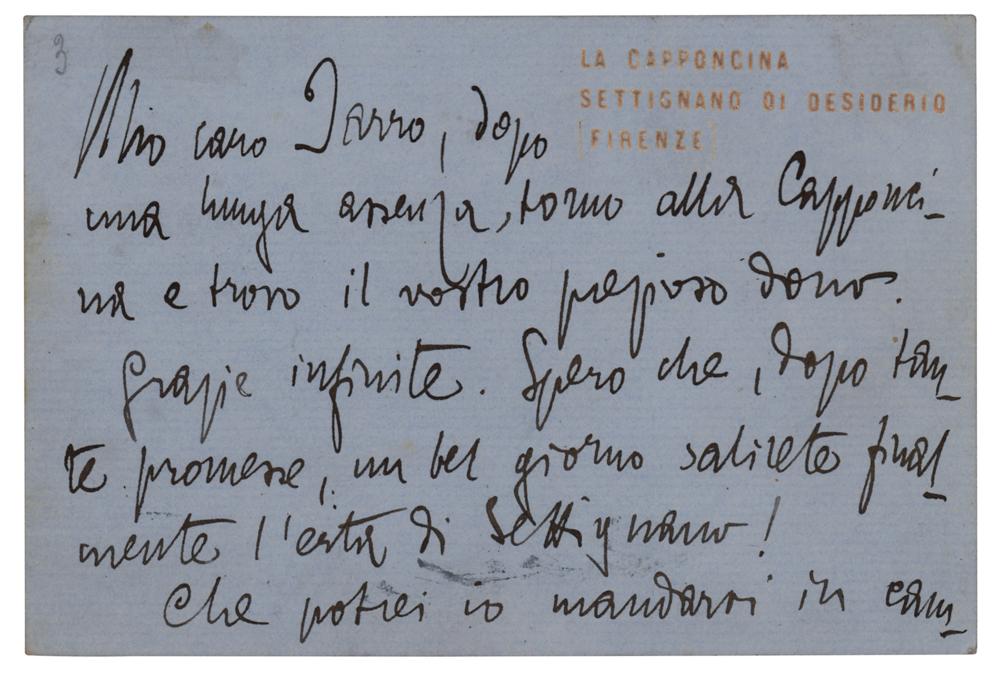 3
LA CAPPONCINA
SETTIGNANO DI DESIDERIO
[FIRENZE]
Mio caro Jarro, dopo
una lunga assenza, torno alla Capponci-
na e trovo il vostro prezioso dono.
Grazie infinite. Spero che, dopo tan-
te promesse, un bel giorno salirete final-
mente l'erta di Settignano!
Che potrei io mandarvi in cam-